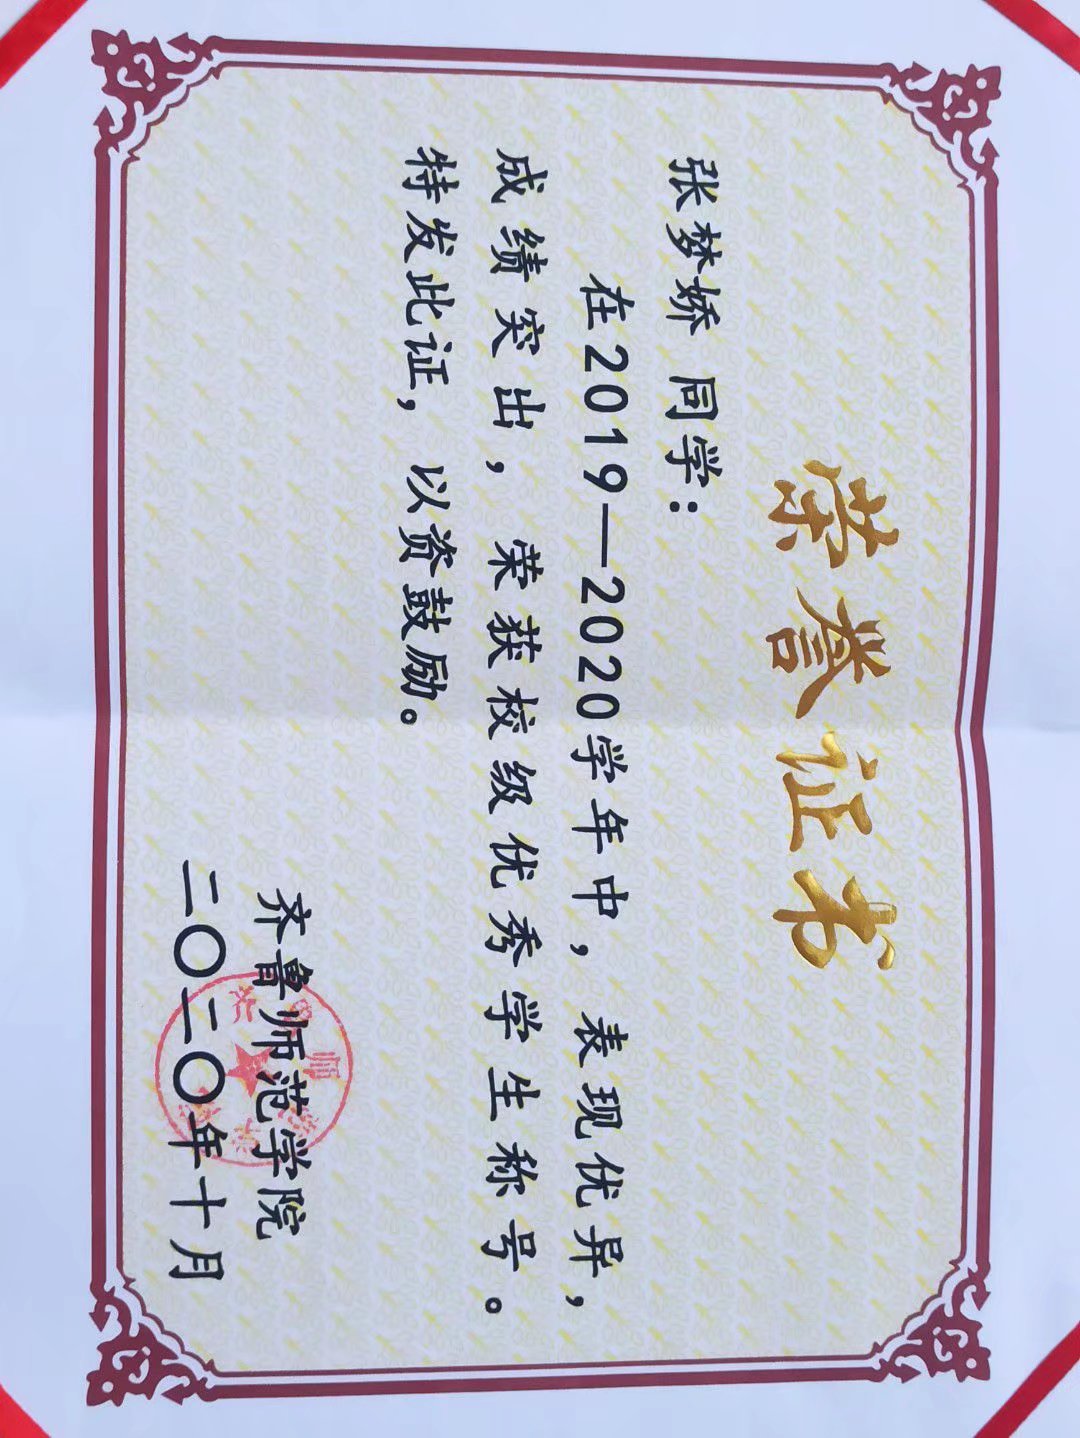 荣誉证书
张梦娇 同学：
在2019—2020学年中，表现优异，
成绩突出，荣获校级优秀学生称号。
特发此证，以资鼓励。
齐鲁师范学院
二〇二〇年十月